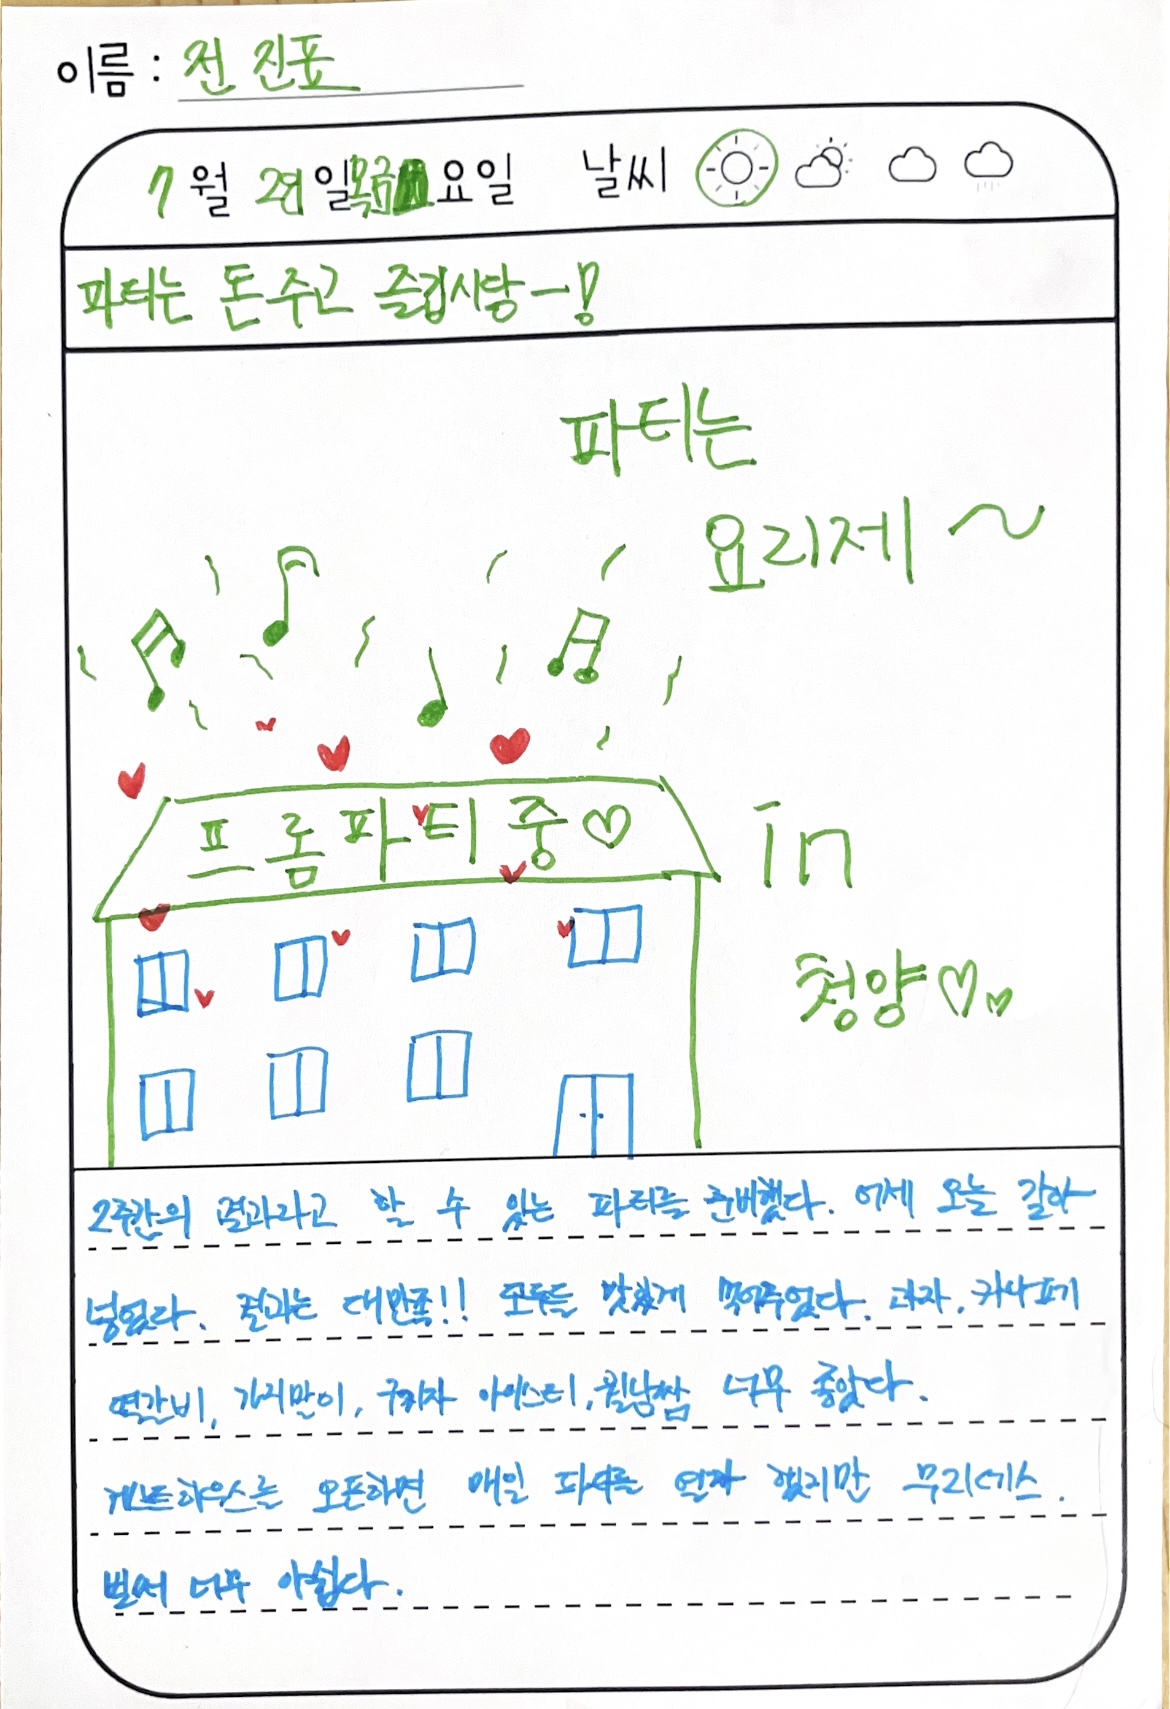 이름 : 전 진표
7 월 일 목금 요일 날씨
파티는 돈 주고 즐깁시당~!
파티는
요리제 ~
프롬파티중♡
in
청양♡♥
2주간의 결과라고 할 수 있는 파티를 준비했다. 어제 오늘 갈아
넣었다. 결과는 대만족!! 모두들 맛있게 먹어주었다. 과자, 카나페기
떡갈비, 가지말이, 구기자 아이스티, 월남쌈 너무 좋았다.
게스트하우스를 오픈하면 매일 파티를 열자 했지만 무리데스.
벌써 너무 아쉽다.